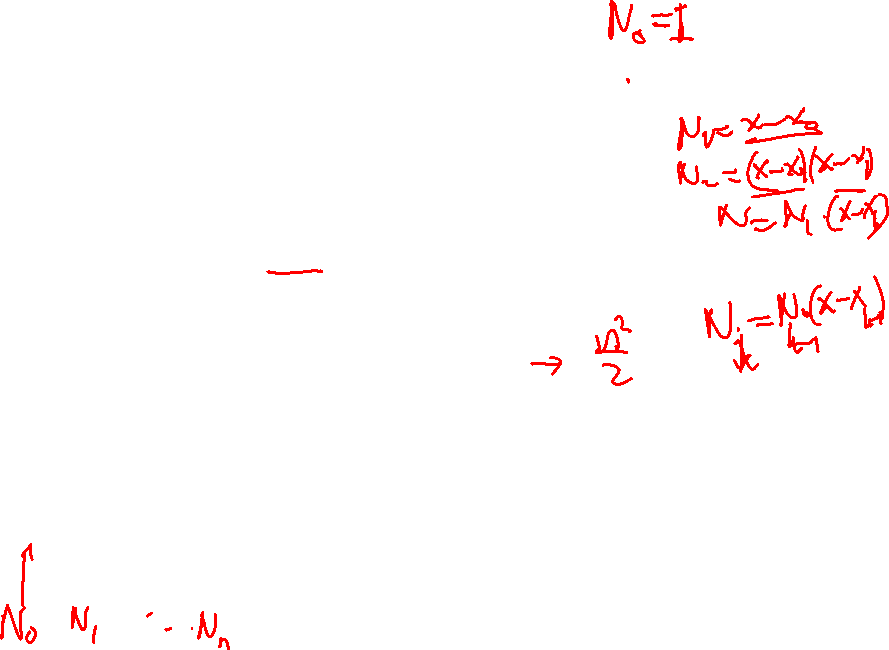 N₀ = 1
N₁ = x - x₀
N₂ = (x - x₀)(x - x₁)
N₂ = N₁ · (x - x₁)
Nₖ = Nₖ₋₁(x - xₖ₋₁)
→ n²/2
N₀ N₁ ... Nₙ